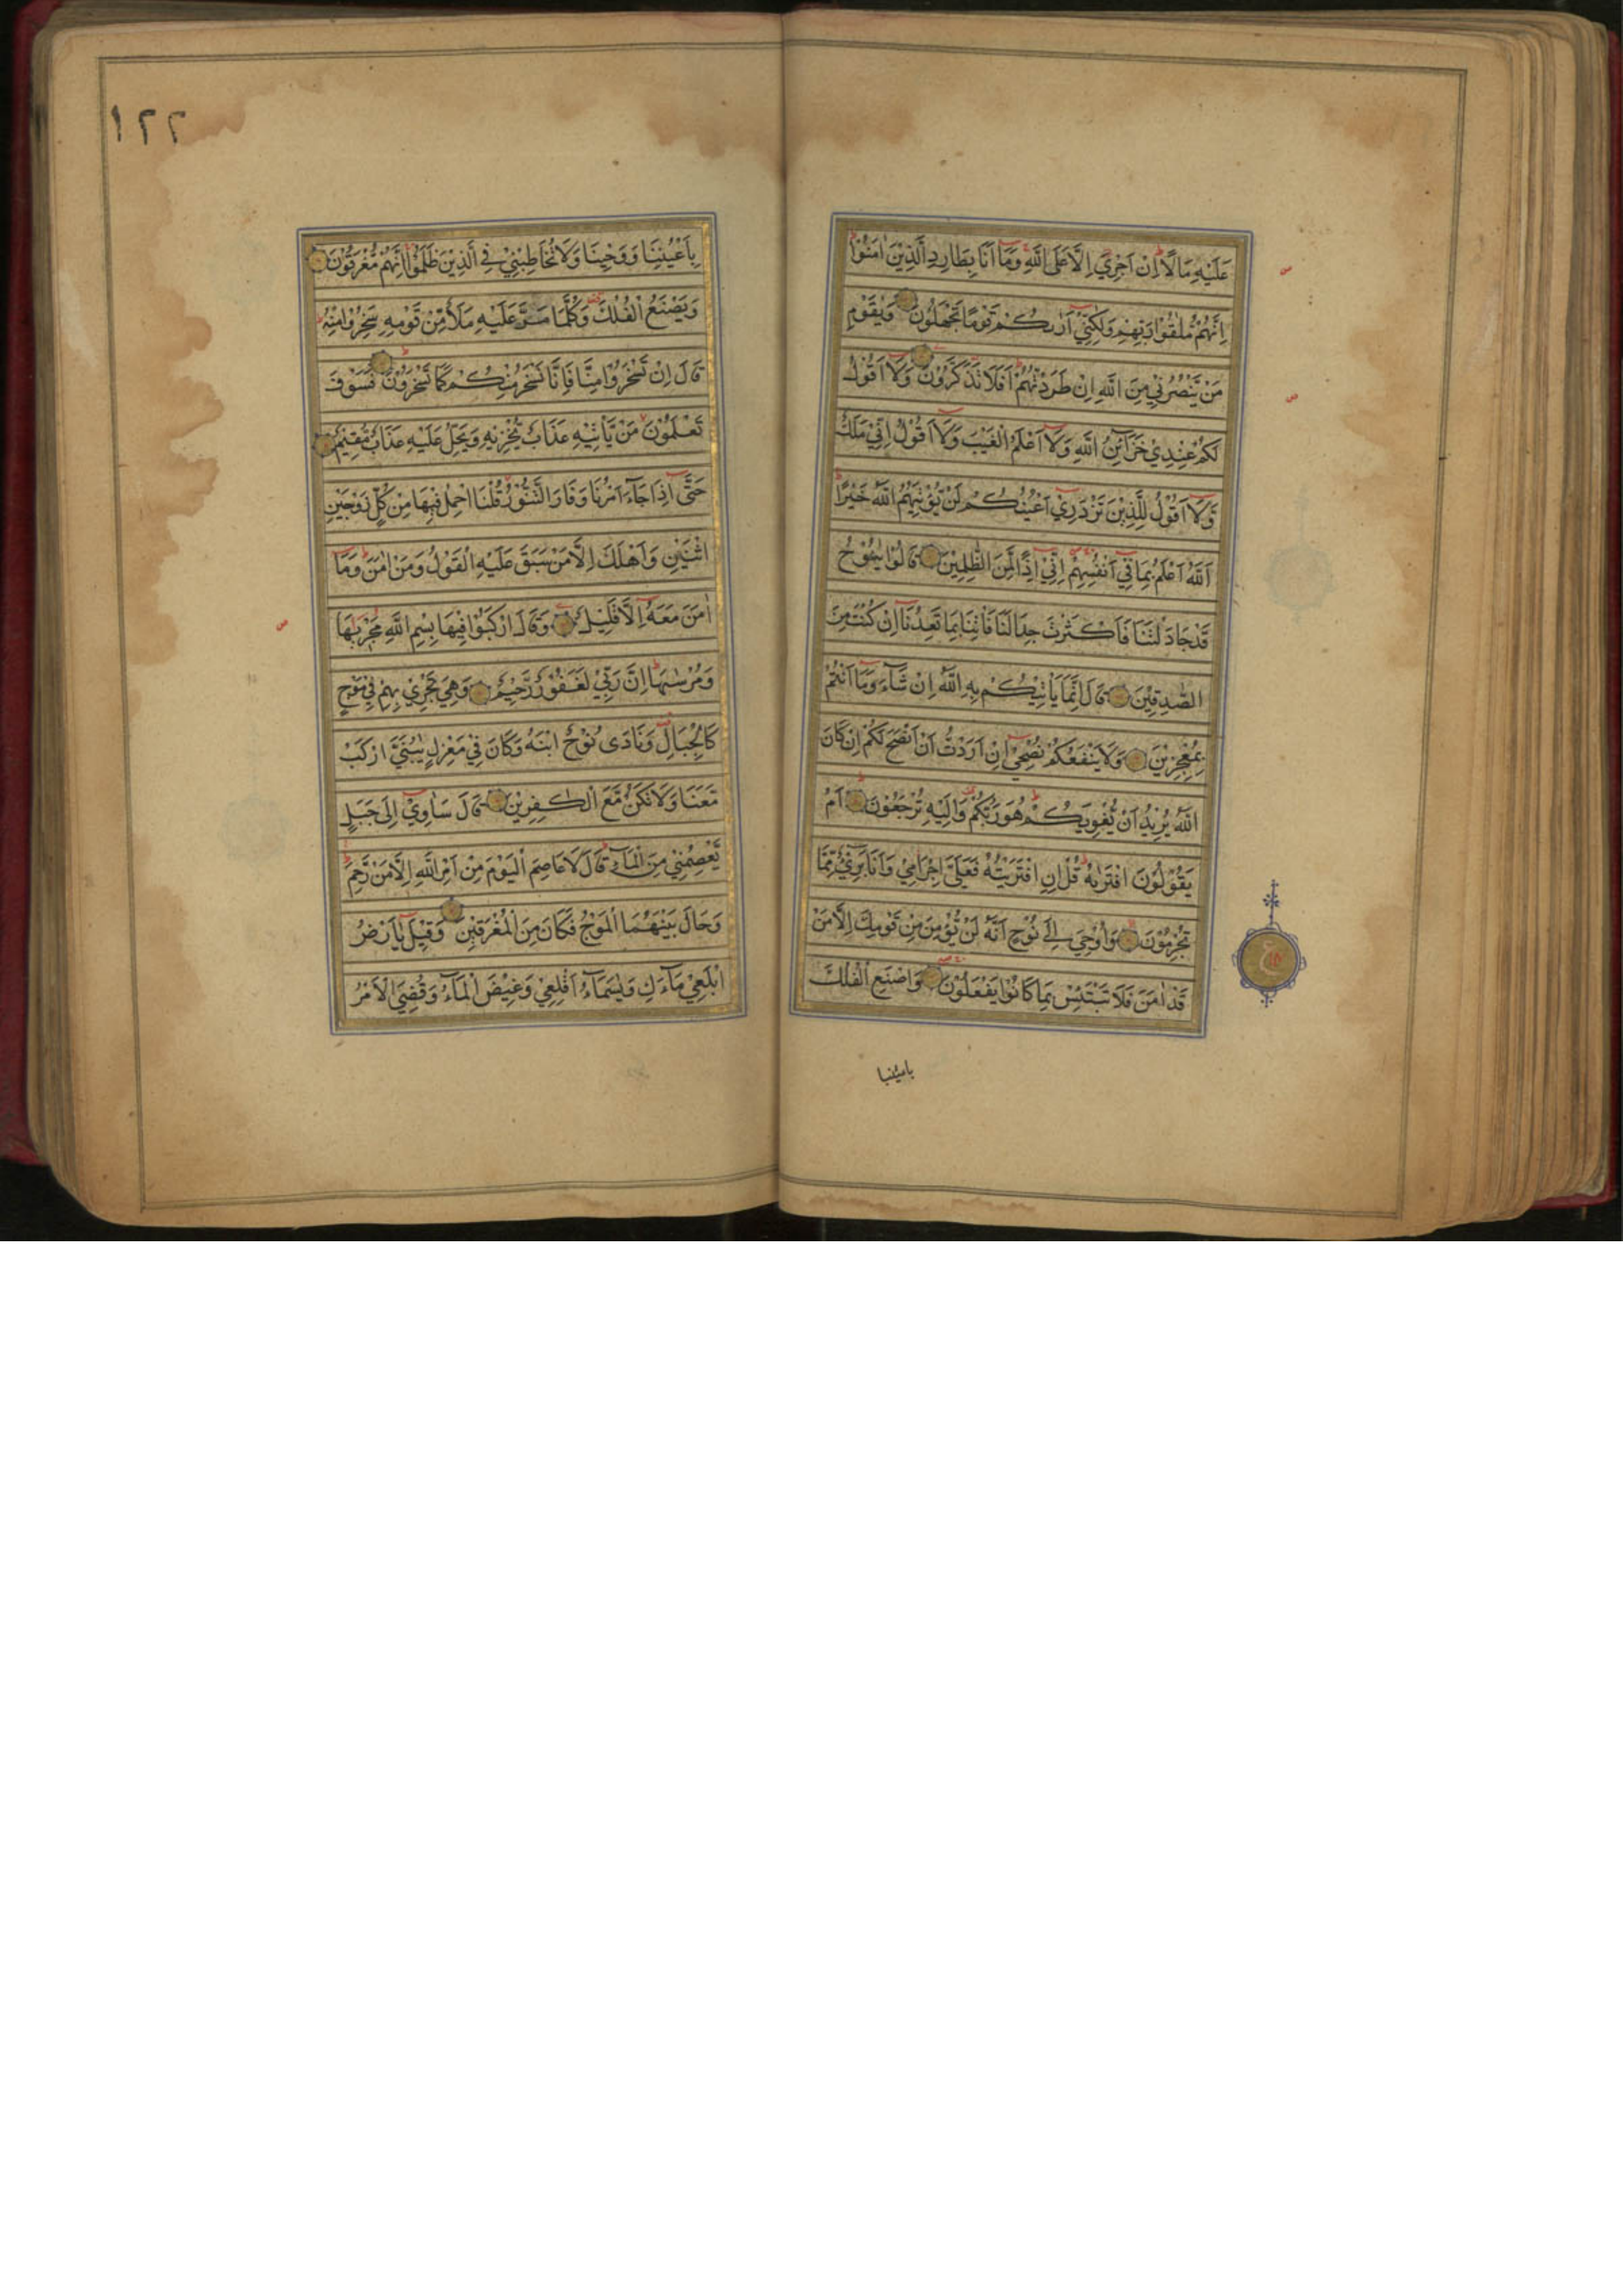 عَلَيْهِ مَالًا اِنْ اَجْرِيَ اِلَّا عَلَى اللّٰهِ وَمَآ اَنَا بِطَارِدِ الَّذِيْنَ اٰمَنُوْا
اِنَّهُمْ مُّلٰقُوْا رَبِّهِمْ وَلٰكِنِّيْٓ اَرٰىكُمْ قَوْمًا تَجْهَلُوْنَ وَيٰقَوْمِ
مَنْ يَّنْصُرُنِيْ مِنَ اللّٰهِ اِنْ طَرَدْتُّهُمْ اَفَلَا تَذَكَّرُوْنَ وَلَآ اَقُوْلُ
لَكُمْ عِنْدِيْ خَزَآئِنُ اللّٰهِ وَلَآ اَعْلَمُ الْغَيْبَ وَلَآ اَقُوْلُ اِنِّيْ مَلَكٌ
وَّلَآ اَقُوْلُ لِلَّذِيْنَ تَزْدَرِيْٓ اَعْيُنُكُمْ لَنْ يُّؤْتِيَهُمُ اللّٰهُ خَيْرًا
اَللّٰهُ اَعْلَمُ بِمَا فِيْٓ اَنْفُسِهِمْ اِنِّيْٓ اِذًا لَّمِنَ الظّٰلِمِيْنَ قَالُوْا يٰنُوْحُ
قَدْ جَادَلْتَنَا فَاَكْثَرْتَ جِدَالَنَا فَاْتِنَا بِمَا تَعِدُنَآ اِنْ كُنْتَ مِنَ
الصّٰدِقِيْنَ قَالَ اِنَّمَا يَاْتِيْكُمْ بِهِ اللّٰهُ اِنْ شَآءَ وَمَآ اَنْتُمْ
بِمُعْجِزِيْنَ وَلَا يَنْفَعُكُمْ نُصْحِيْٓ اِنْ اَرَدْتُّ اَنْ اَنْصَحَ لَكُمْ اِنْ كَانَ
اللّٰهُ يُرِيْدُ اَنْ يُّغْوِيَكُمْ هُوَ رَبُّكُمْ وَاِلَيْهِ تُرْجَعُوْنَ اَمْ
يَقُوْلُوْنَ افْتَرٰىهُ قُلْ اِنِ افْتَرَيْتُهٗ فَعَلَيَّ اِجْرَامِيْ وَاَنَا بَرِيْٓءٌ مِّمَّا
تُجْرِمُوْنَ وَاُوْحِيَ اِلٰى نُوْحٍ اَنَّهٗ لَنْ يُّؤْمِنَ مِنْ قَوْمِكَ اِلَّا مَنْ
قَدْ اٰمَنَ فَلَا تَبْتَئِسْ بِمَا كَانُوْا يَفْعَلُوْنَ وَاصْنَعِ الْفُلْكَ
باعيننا
١٢٢
بِاَعْيُنِنَا وَوَحْيِنَا وَلَا تُخَاطِبْنِيْ فِي الَّذِيْنَ ظَلَمُوْا اِنَّهُمْ مُّغْرَقُوْنَ
وَيَصْنَعُ الْفُلْكَ وَكُلَّمَا مَرَّ عَلَيْهِ مَلَأٌ مِّنْ قَوْمِهٖ سَخِرُوْا مِنْهُ
قَالَ اِنْ تَسْخَرُوْا مِنَّا فَاِنَّا نَسْخَرُ مِنْكُمْ كَمَا تَسْخَرُوْنَ فَسَوْفَ
تَعْلَمُوْنَ مَنْ يَّاْتِيْهِ عَذَابٌ يُّخْزِيْهِ وَيَحِلُّ عَلَيْهِ عَذَابٌ مُّقِيْمٌ
حَتّٰٓى اِذَا جَآءَ اَمْرُنَا وَفَارَ التَّنُّوْرُ قُلْنَا احْمِلْ فِيْهَا مِنْ كُلٍّ زَوْجَيْنِ
اثْنَيْنِ وَاَهْلَكَ اِلَّا مَنْ سَبَقَ عَلَيْهِ الْقَوْلُ وَمَنْ اٰمَنَ وَمَآ
اٰمَنَ مَعَهٗٓ اِلَّا قَلِيْلٌ وَقَالَ ارْكَبُوْا فِيْهَا بِسْمِ اللّٰهِ مَجْرٖىهَا
وَمُرْسٰىهَا اِنَّ رَبِّيْ لَغَفُوْرٌ رَّحِيْمٌ وَهِيَ تَجْرِيْ بِهِمْ فِيْ مَوْجٍ
كَالْجِبَالِ وَنَادٰى نُوْحٌ ابْنَهٗ وَكَانَ فِيْ مَعْزِلٍ يّٰبُنَيَّ ارْكَبْ
مَّعَنَا وَلَا تَكُنْ مَّعَ الْكٰفِرِيْنَ قَالَ سَاٰوِيْٓ اِلٰى جَبَلٍ
يَّعْصِمُنِيْ مِنَ الْمَآءِ قَالَ لَا عَاصِمَ الْيَوْمَ مِنْ اَمْرِ اللّٰهِ اِلَّا مَنْ رَّحِمَ
وَحَالَ بَيْنَهُمَا الْمَوْجُ فَكَانَ مِنَ الْمُغْرَقِيْنَ وَقِيْلَ يٰٓاَرْضُ
ابْلَعِيْ مَآءَكِ وَيٰسَمَآءُ اَقْلِعِيْ وَغِيْضَ الْمَآءُ وَقُضِيَ الْاَمْرُ